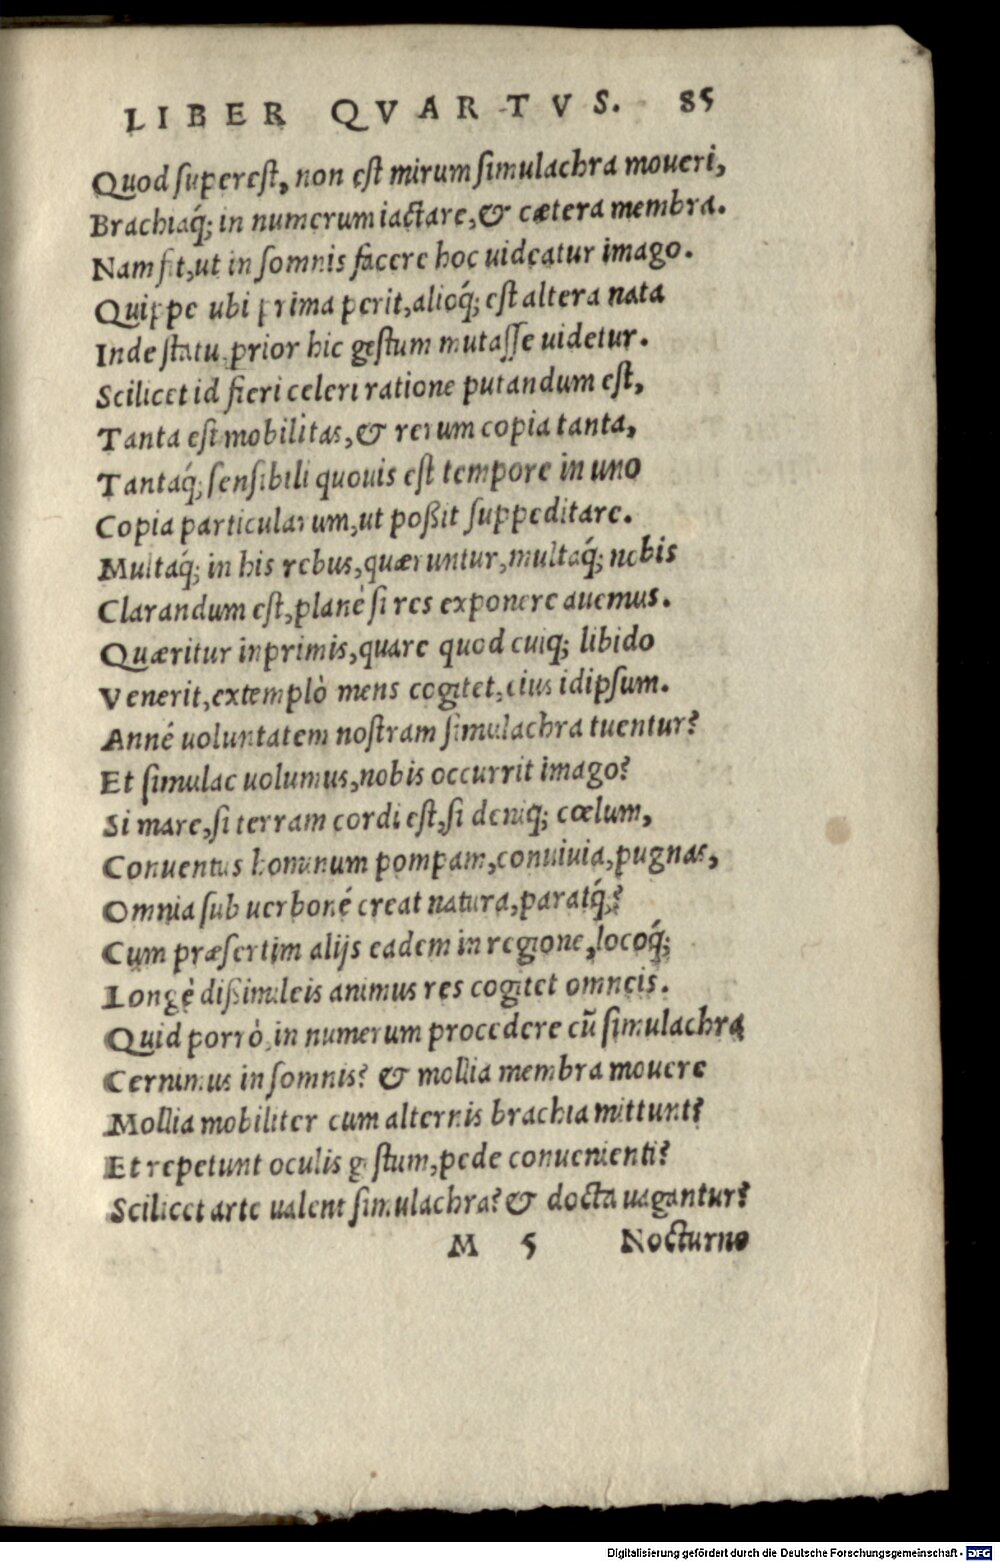 LIBER QVARTVS. 85
Quod superest, non est mirum simulachra moueri,
Brachiaq́; in numerum iactare, & cætera membra.
Nam fit, ut in somnis facere hoc uideatur imago.
Quippe ubi prima perit, alioq́; est altera nata
Inde statu, prior hic gestum mutasse uidetur.
Scilicet id fieri celeri ratione putandum est,
Tanta est mobilitas, & rerum copia tanta,
Tantaq́; sensibili quouis est tempore in uno
Copia particularum, ut poßit suppeditare.
Multaq́; in his rebus, quæruntur, multaq́; nobis
Clarandum est, planè si res exponere auemus.
Quæritur inprimis, quare quod cuiq; libido
Venerit, extemplò mens cogitet, eius idipsum.
Anné uoluntatem nostram simulachra tuentur?
Et simulac uolumus, nobis occurrit imago?
Si mare, si terram cordi est, si deniq; cœlum,
Conuentus hominum pompam, conuiuia, pugnas,
Omnia sub uerboné creat natura, paratq́;?
Cum præsertim alijs eadem in regione, locoq́;
Longè dißimileis animus res cogitet omneis.
Quid porrò, in numerum procedere cũ simulachra
Cernimus in somnis? & mollia membra mouere
Mollia mobiliter cum alternis brachia mittunt?
Et repetunt oculis gestum, pede conuenienti?
Scilicet arte ualent simulachra? & docta uagantur?
M 5 Nocturno
Digitalisierung gefördert durch die Deutsche Forschungsgemeinschaft - DFG